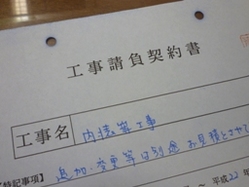 工事請負契約書
工事名 内装等工事
【特記事項】追加・変更等は別途お見積とさせて
～ 平成22年